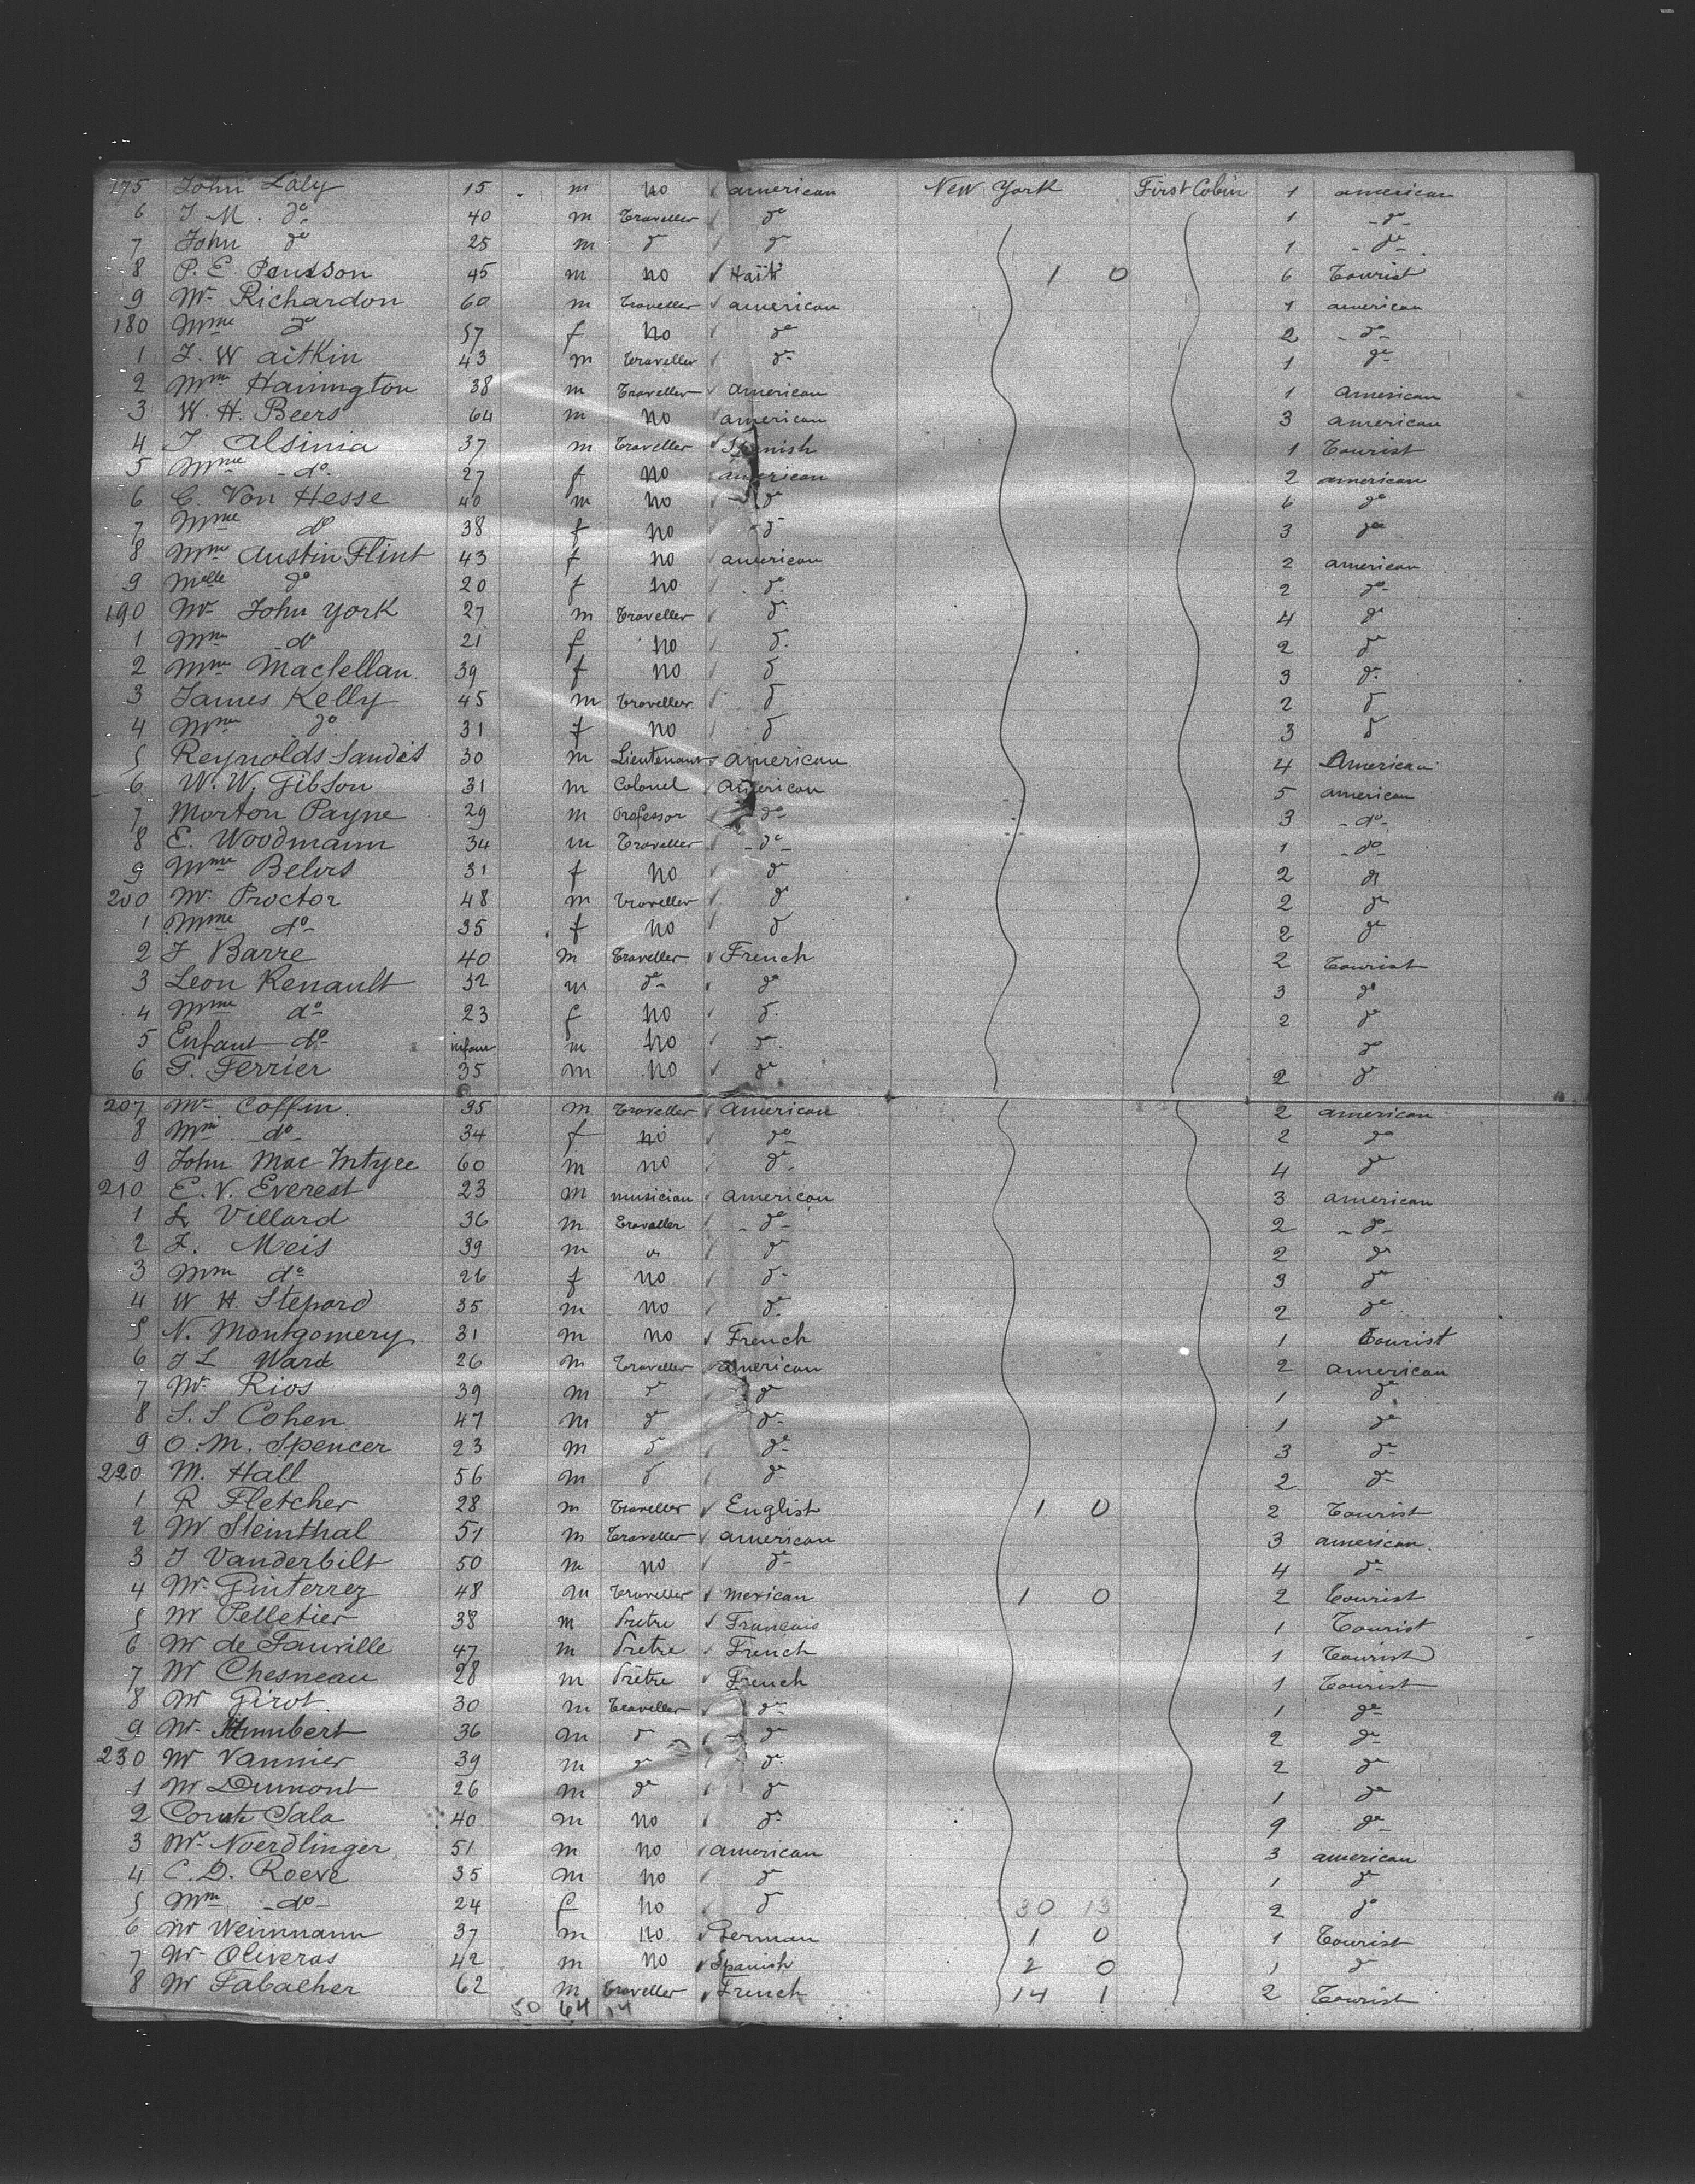 175 John Laly 15 m no american New York First Cabin 1 american
6 J M. do 40 m Traveller do 1 do
7 John do 25 m do do 1 do
8 P. E. 45 m no Haïti 1 0 6 Tourist
9 Mr Richardon 60 m Traveller american 1 american
180 Mme do 57 f no do 2 do
1 J. W aitkin 43 m Traveller do 1 do
2 Mme 38 m Traveller american 1 american
3 W. H. Beers 64 m no american 3 american
4 J Alsinia 37 m Traveller Spanish 1 Tourist
5 Mme do 27 f no american 2 american
6 C. Von Hesse 40 m no do 6 do
7 Mme do 38 f no do 3 do
8 Mme Austin Flint 43 f no american 2 american
9 Melle do 20 f no do 2 do
190 Mr John York 27 m Traveller do 4 do
1 Mme do 21 f no do 2 do
2 Mme Maclellan 39 f no do 3 do
3 James Kelly 45 m Traveller do 2 do
4 Mme do 31 f no do 3 do
5 Reynolds 30 m Lieutenant american 4 American
6 W. W. Gibson 31 m Colonel american 5 american
7 Morton Payne 29 m Professor do 3 do
8 E. Woodmann 34 m Traveller do 1 do
9 Mme 31 f no do 2 do
200 Mr Proctor 48 m Traveller do 2 do
1 Mme do 35 f no do 2 do
2 J Barre 40 m Traveller French 2 Tourist
3 Leon Renault 32 m do do 3 do
4 Mme do 23 f no do 2 do
5 Enfant do infant m no do do
6 G. Ferrier 35 m no do 2 do
207 Mr Coffin 35 m Traveller american 2 american
8 Mme do 34 f no do 2 do
9 John Mac Intyre 60 m no do 4 do
210 E. V. Everest 23 m musician american 3 american
1 Villard 36 m Traveller do 2 do
2 J. Meis 39 m do 2 do
3 Mme do 26 f no do 3 do
4 W H. Stepard 35 m no do 2 do
5 N. Montgomery 31 m no French 1 Tourist
6 J L Ward 26 m Traveller american 2 american
7 Mr Rios 39 m do do 1 do
8 S. S Cohen 47 m do do 1 do
9 O. M. Spencer 23 m do do 3 do
220 M. Hall 56 m do do 2 do
1 R Fletcher 28 m Traveller English 1 0 2 Tourist
2 Mr Steinthal 51 m Traveller american 3 american
3 J Vanderbilt 50 m no do 4 do
4 Mr Ginterrez 48 m Traveller mexican 1 0 2 Tourist
5 Mr Pelletier 38 m Pretre Francais 1 Tourist
6 Mr de Fauville 47 m Pretre French 1 Tourist
7 Mr Chesneau 28 m Prêtre French 1 Tourist
8 Mr Girot 30 m Traveller do 1 do
9 Mr Humbert 36 m do do 2 do
230 Mr Vannier 39 m do do 2 do
1 Mr Dumont 26 m do do 1 do
2 Comte Sala 40 m no do 9 do
3 Mr Noerdlinger 51 m no american 3 american
4 C. D. Roeve 35 m no do 1 do
5 Mme do 24 f no do 30 13 2 do
6 Mr Weinmann 37 m no German 1 0 1 Tourist
7 Mr Oliveras 42 m no Spanish 2 0 1 do
8 Mr Tabacher 62 m Traveller French 14 1 2 Tourist
50 64 14